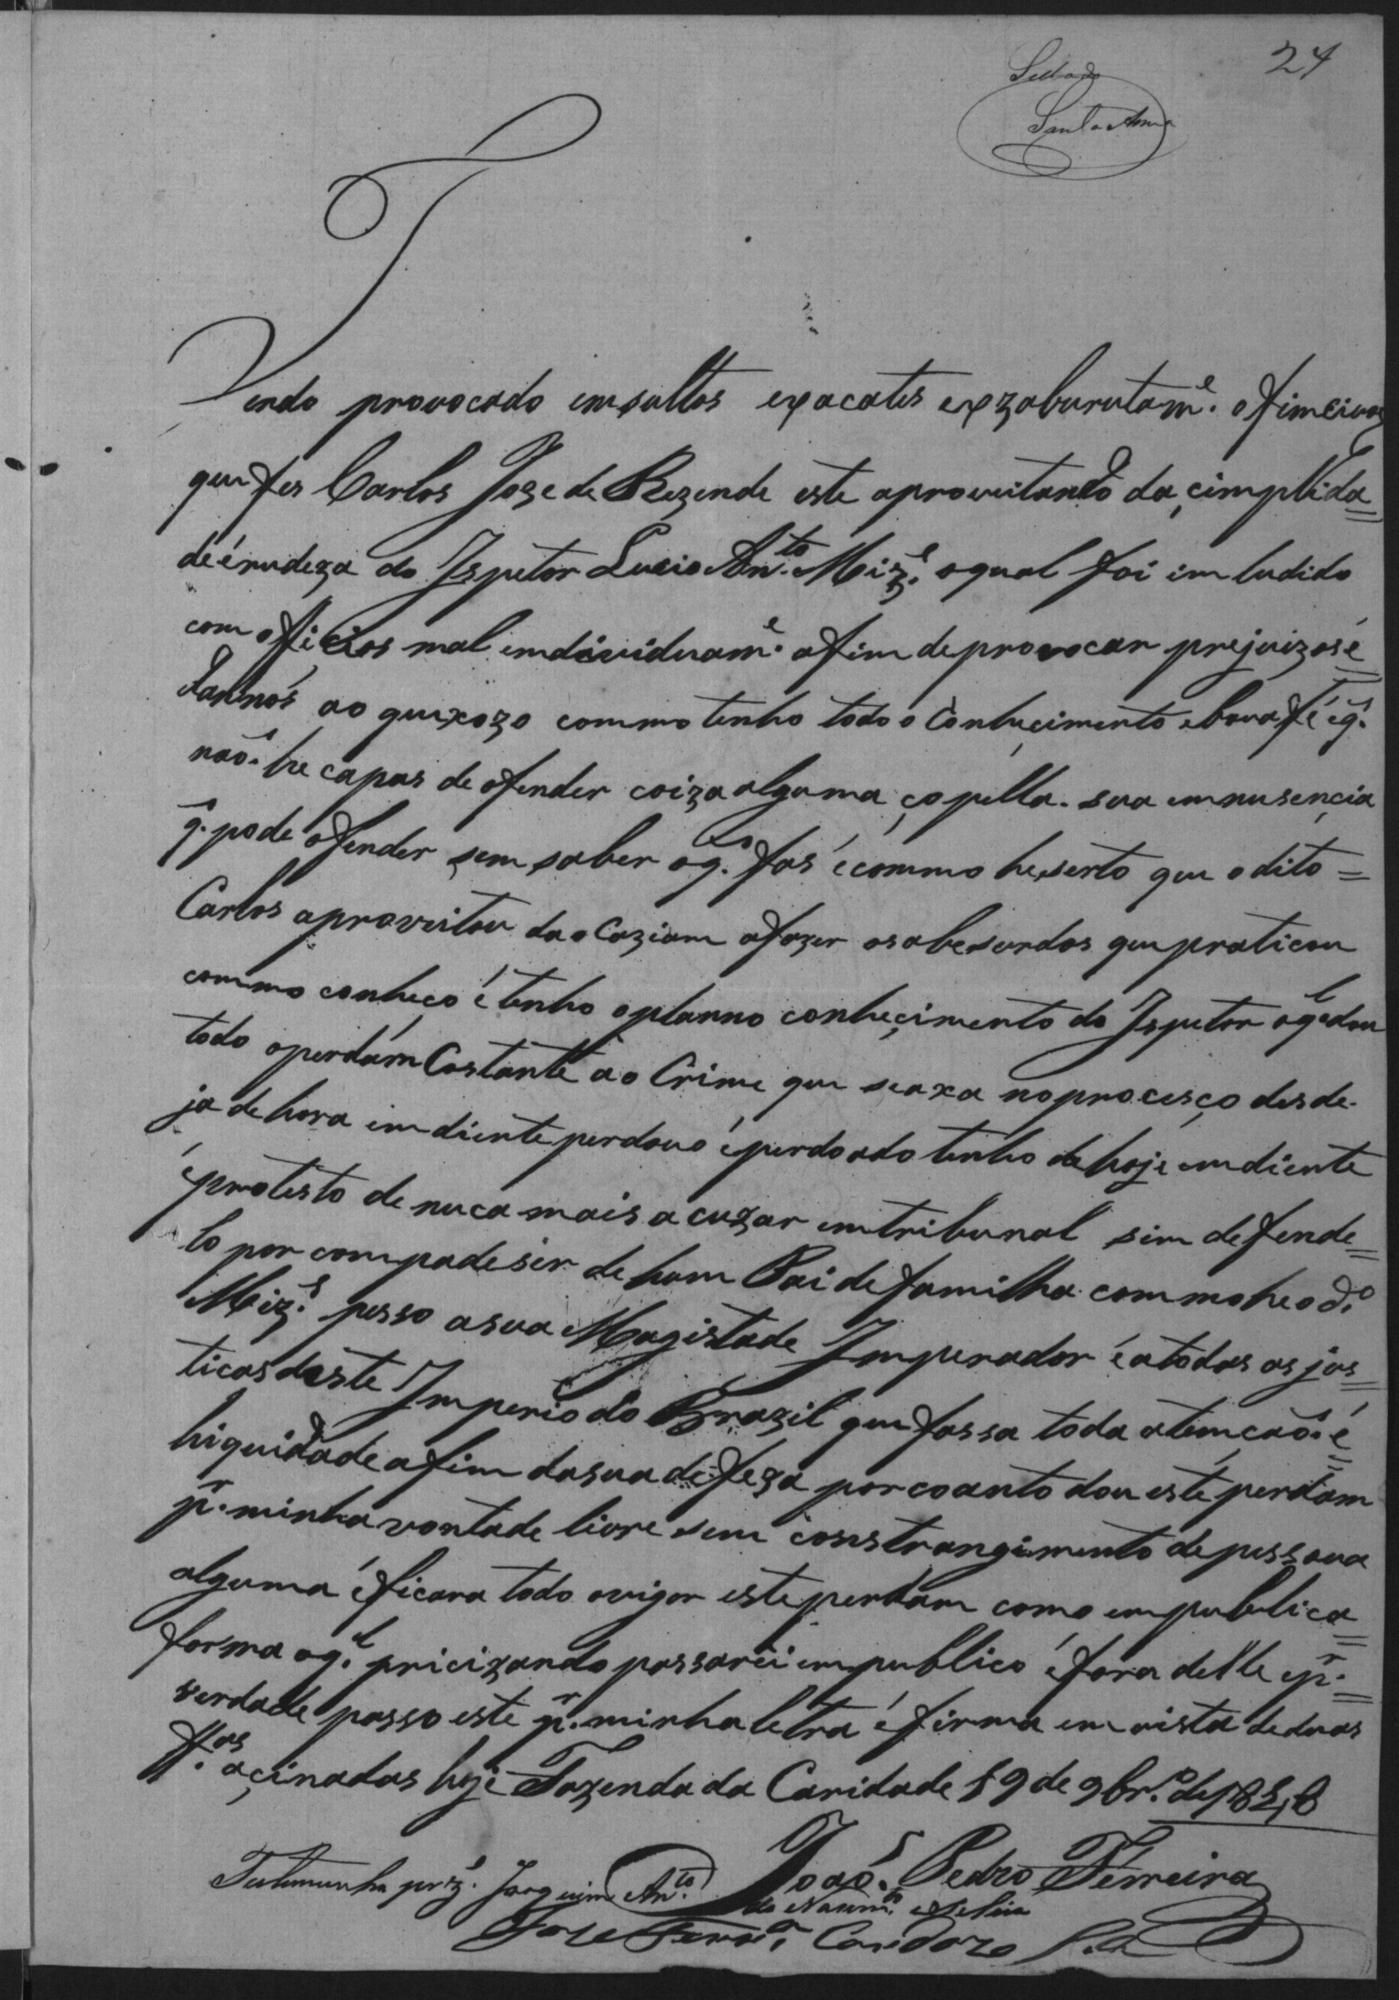 24
Sellado
Santa Anna
Tendo provocado insultos expacates expzaburutam.e ofimeiros
que fes Carlos Joze de Rezende este aproveitando da çimplida=
de é rudeza do Ispetor Lucio An.to Miz.s o qual foi imludido
com oficios mal emdeviduam.e afim de provocar prejuizos é
dannos ao queixozo commo tenho todo o Conheçimento eboua fé eq.
não he capas de ofender coiza alguma ço pella sua ennusencia
q. pode ofender sem saber oq. fas é commo he serto que o dito=
Carlos aproveitou da o Caziam a fazer os abesurdos que praticou
commo conheço é tenho o planno conheçimento do Ispetor oq.l dou
todo o perdam Costante ao Crime que se axa no proceço desde
ja de hora em diente perdouo é perdoado tenho de hoje em diente
é protesto de nuca mais acuzar em tribunal sim defende=
lo por compadeser de hum Pai de familha commo he o d.o
Miz.s pesso a sua Magistade Imperador é a todas as jus=
ticas deste Imperio do Brazil que fassa toda atemçaõ é
hiquidade afim da sua defeza por coanto dou este perdam
p.r minha vontade livre sem constrangimento de pessoua
alguma é ficara todo ovigor este perdam como em publica=
forma oq.l pricizando passarei em publico é fora delle e p.r=
verdade passo este p.r minha letra é firma em vista de duas
tt.as açinadas hoje Fazenda da Caridade 19 de 9br.o de 1858
João Pedro Ferreira
Testemunha prez.e Joaquim An.to do Nascim.to e Silva
Joze Ferr.a Cardozo